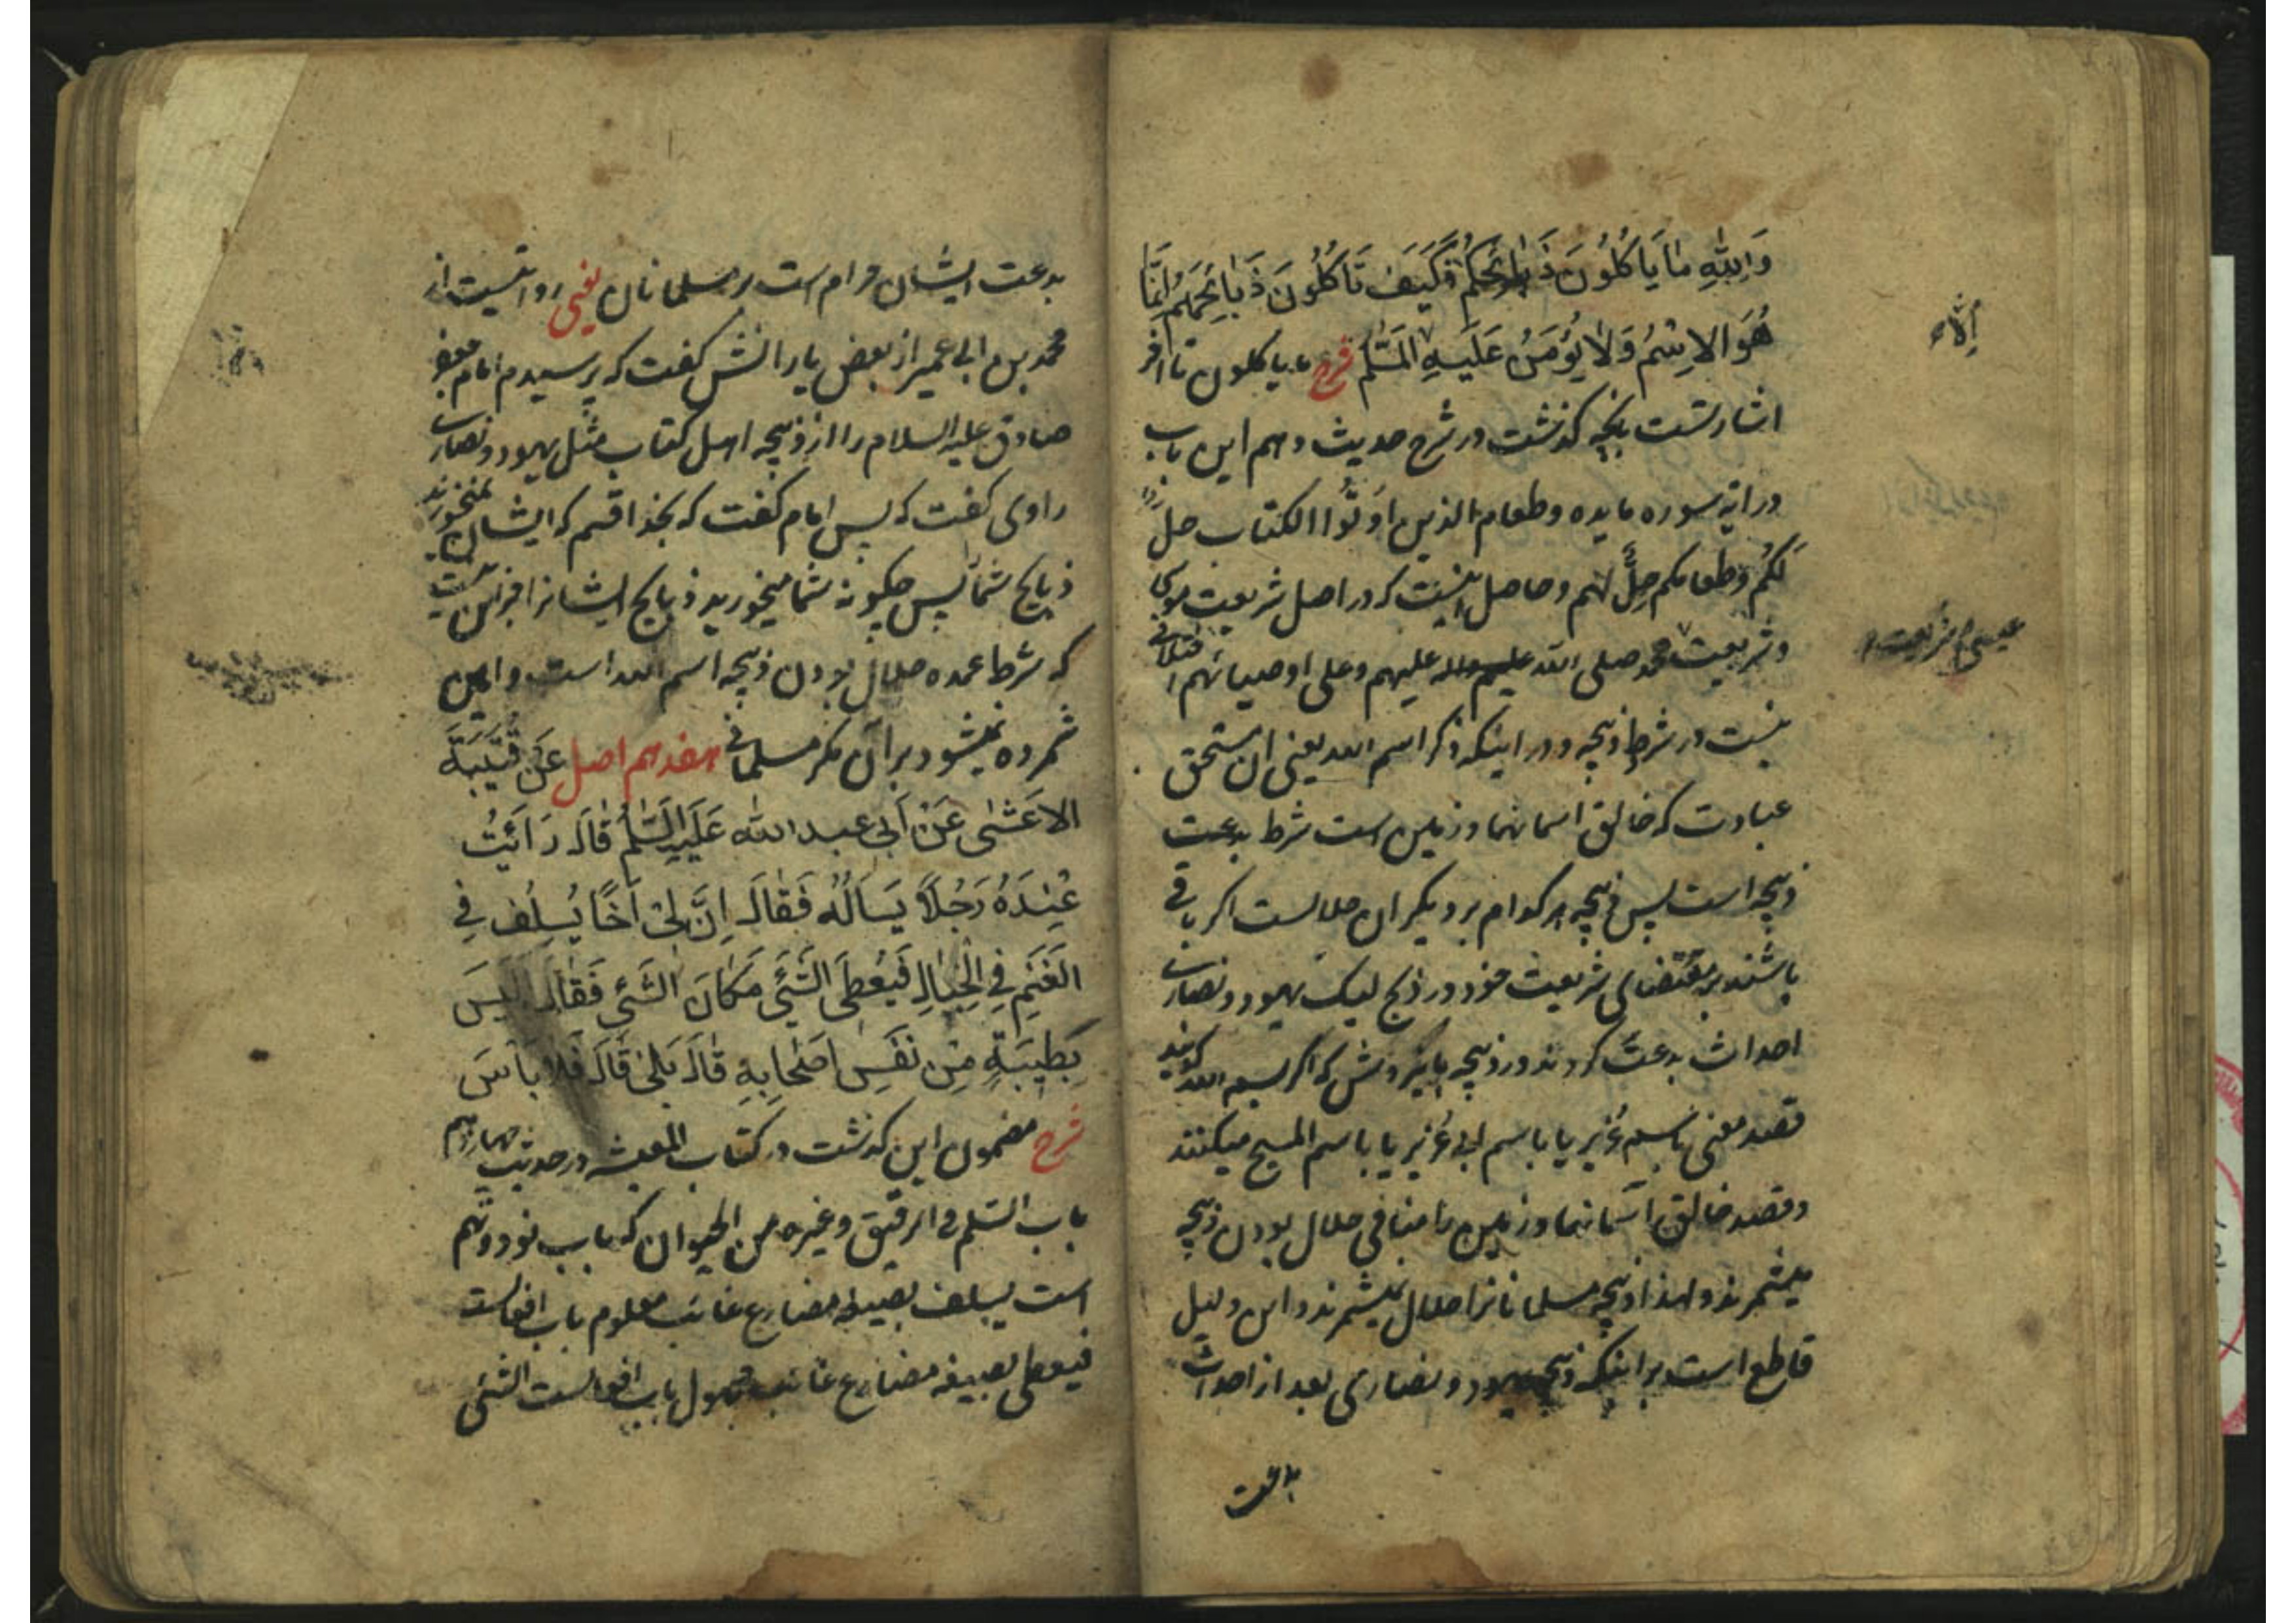 وَاللّٰهِ مٰا يَاْكُلُونَ ذَبٰائِحَكُمْ فَكَيْفَ تَأكُلُونَ ذَبٰائِحَهُمْ اِنَّمَا
هُوَ الاِسْمُ وَلاٰ يُؤْمَنُ عَلَيْهِ اِلّاٰ المُسْلِمُ شرح ما یاکلون تا اخر
اشارتست بانچه گذشت در شرح حدیث دهم این باب
در آیه سوره مایده وطعام الذین اوتُوا الکتاب حلٌّ
لَكُمْ وطعامکم حِلٌّ لهم وحاصل اینست که در اصل شریعت موسی
عیسی و شریعت
وشریعت محمد صلی الله علیهم وعلی اوصیائهم اختلافی
نیست در شرط ذبیحه ودر اینکه ذکر اسم الله یعنی ان مستحق
عبادت که خالق اسمانها وزمین است شرط بدعت
ذبیحه است پس ذبیحه هر کدام بر دیگران حلالست اگر باقی
باشند بر مقتضای شریعت خود در ذبح لیک یهود ونصاری
احداث بدعت کردند در ذبیحه باین روش که اگر بسم الله گویند
قصد معنی باسم عُزیر یا باسم ابی عُزیر یا باسم المسیح میکنند
وقصد خالق آسمانها وزمین را منافی حلال بودن ذبیحه
میشمرند ولهذا ذبیحه مسلمانانرا حلال نمیشمرند واین دلیل
قاطع است بر اینکه ذبیحه یهود ونصاری بعد از احداث
بدعت
بدعت ایشان حرام است بر مسلمانان یعنی روایتست از
محمد بن ابی عمیر از بعض یارانش گفت که پرسیدم امام جعفر
صادق علیه السلام را از ذبیحه اهل کتاب مثل یهود ونصاری
راوی گفت که پس امام گفت که بخدا قسم که ایشان نمیخورند
ذبایح شما پس چگونه شما میخورید ذبایح ایشانرا جز این نیست
که شرط عمده حلال بودن ذبیحه اسم الله است وامین
شمرده نمیشود بر آن مگر مسلمانی هفدهم اصل عَنْ قُتَيْبَةَ
الاَعْشٰى عَنْ اَبى عبد الله عَلَيْهِ السَّلٰمُ قٰالَ رَاَيْتُ
عِنْدَهُ رَجُلاً يَسْاَلُهُ فَقٰالَ اِنَّ لِى اَخًا يُسْلِفُ فِى
الغَنَمِ فِى الْجِبٰالِ فَيُعْطِى الشَّئَ مَكٰانَ الشَّئِ فَقٰالَ اَلَيْسَ
بِطِيْبَةٍ مِنْ نَفْسِ اَصْحٰابِهِ قٰالَ بَلٰى قٰالَ فَلا بَأْسَ
شرح مضمون این گذشت در کتاب المعیشه در حدیث چهاردهم
باب السّلم فی الرقیق وغیره من الحیوان که باب نود ونهم
است یسلف بصیغه مضارع غائب معلوم باب افعالست
فیعطی بصیغه مضارع غائب مجهول باب افعالست الشئی